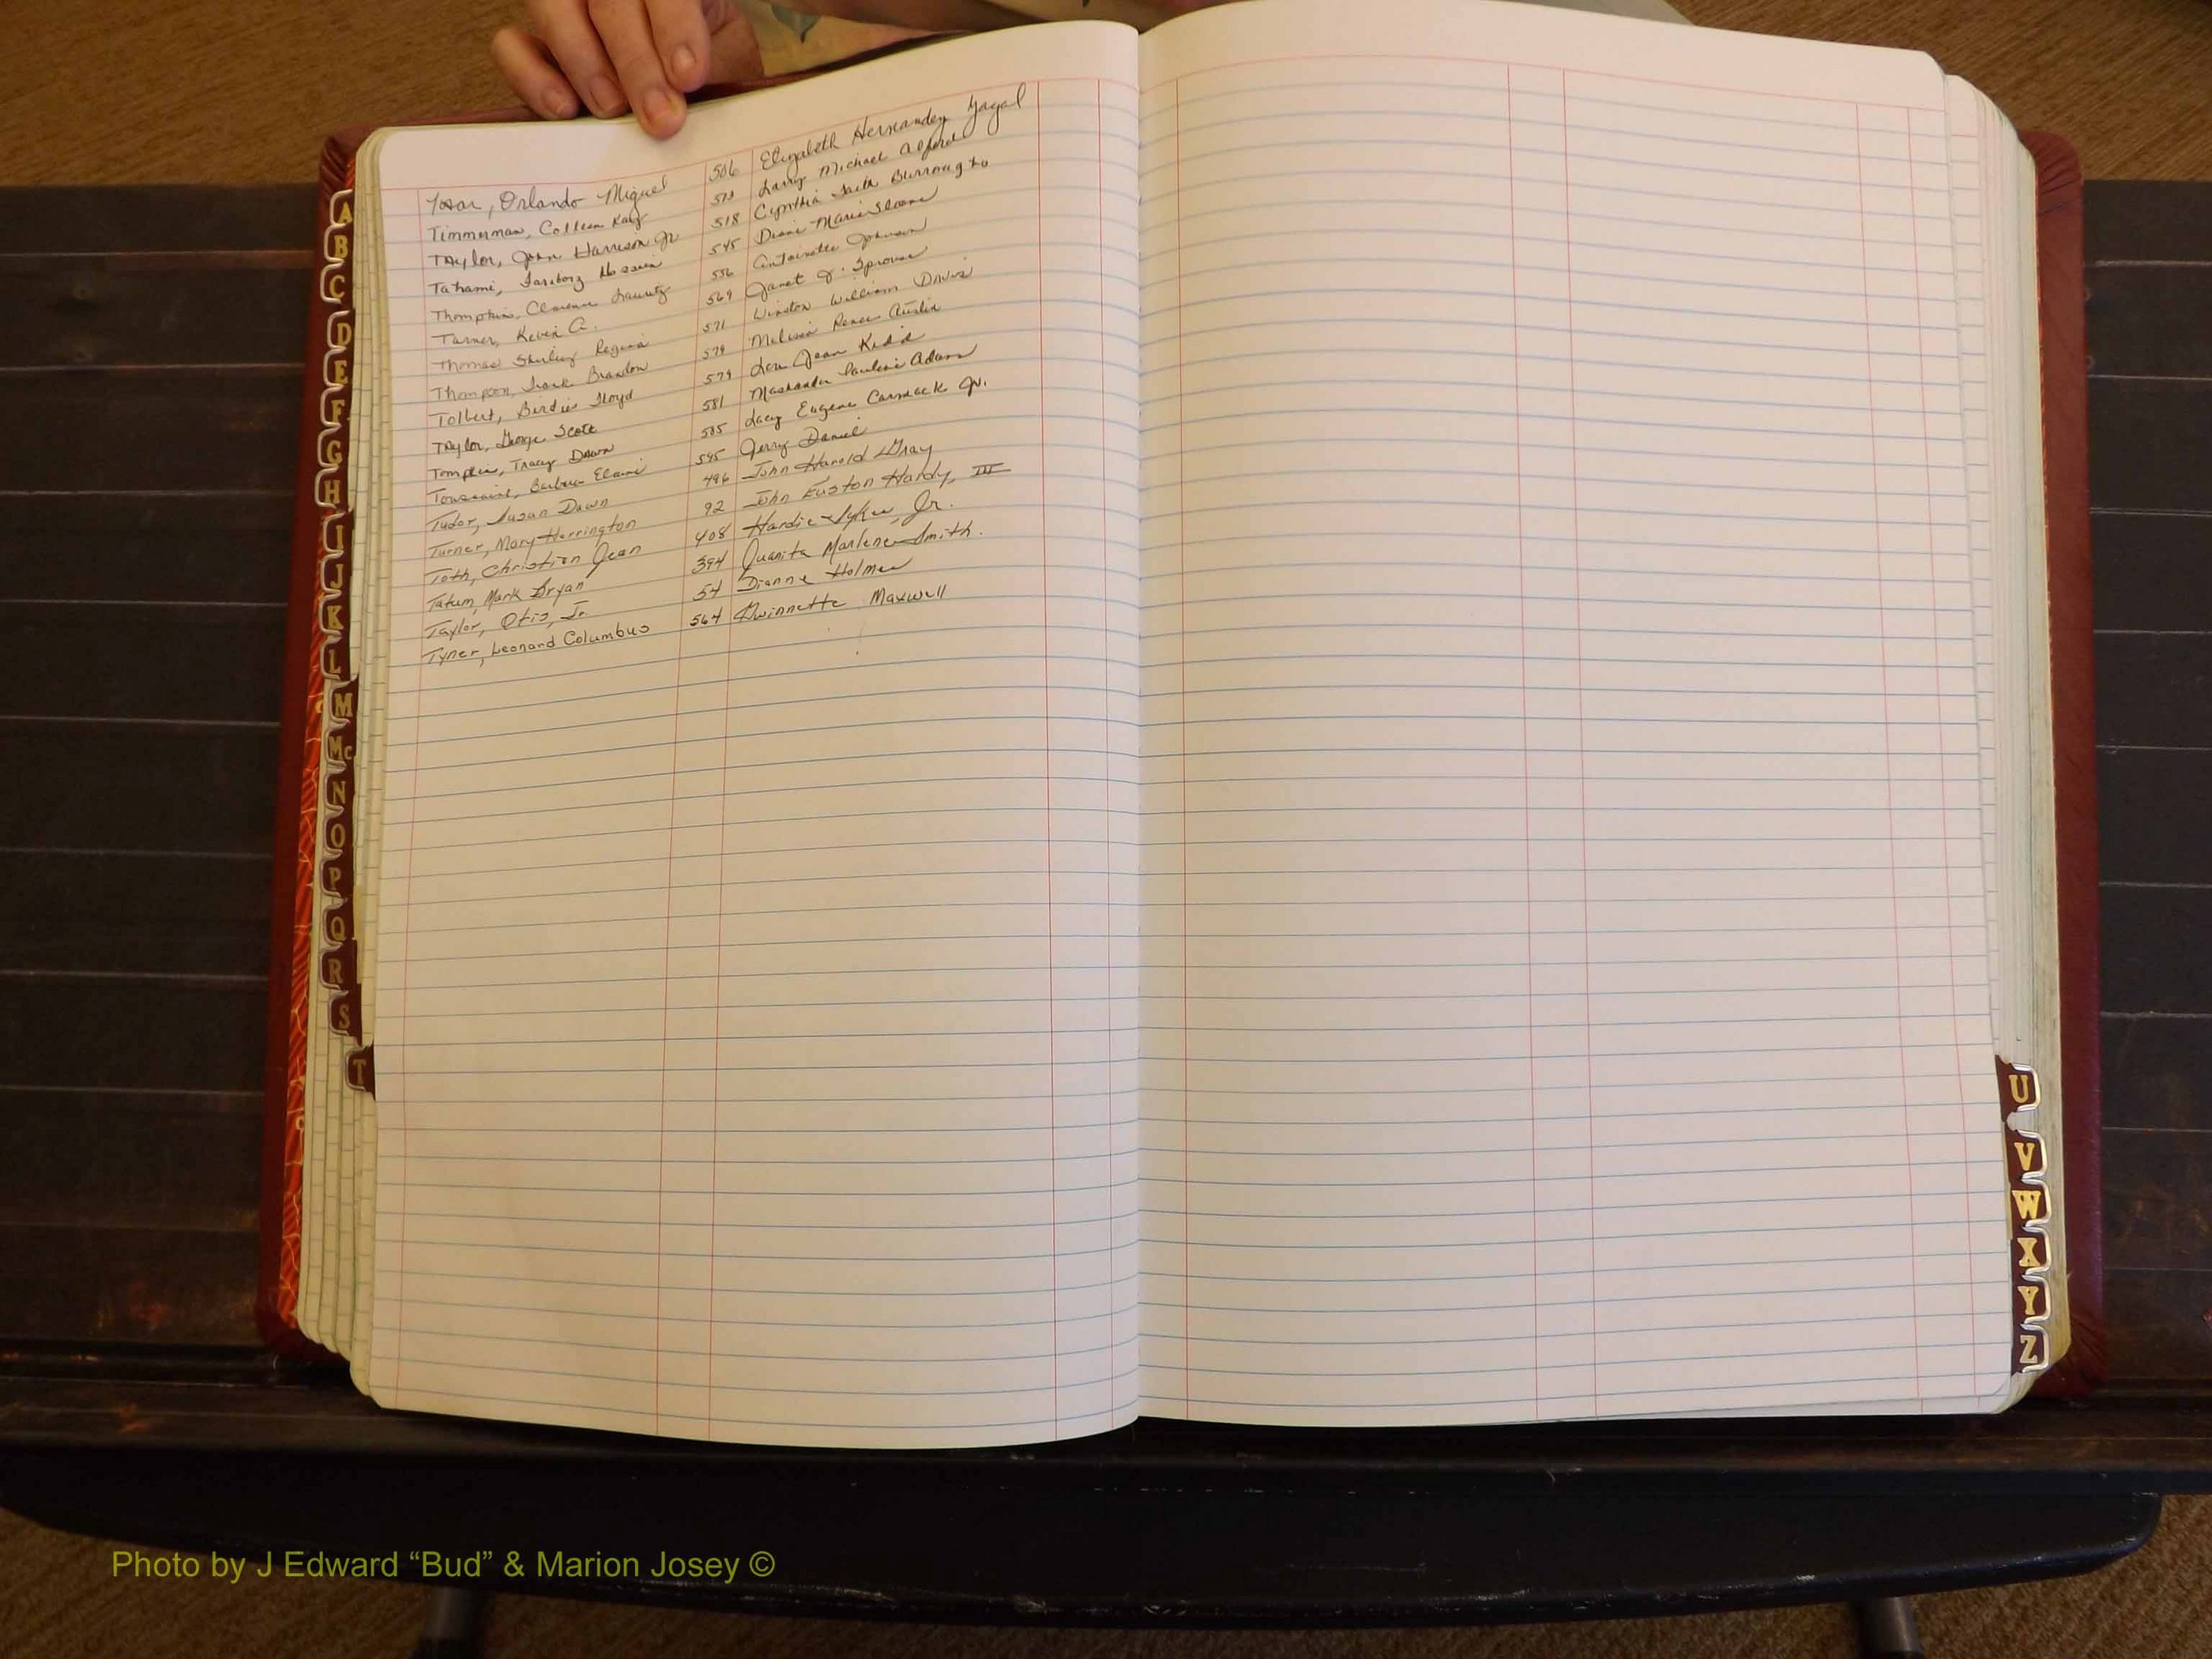 Tovar, Orlando Miguel 506 Elizabeth Hernandez Yagal
Timmerman, Colleen Kay 513 Larry Michael Alford
Taylor, John Harrison Jr 518 Cynthia Faith Burroughs
Tahami, Fariborz Hossein 545 Diane Marie Sloane
Thompkins, Clarence 556 Antoinette Johnson
Turner, Kevin A. 569 Janet J. Sprouse
Thomas Shirley Regina 571 Winston William Davis
Thompson, Brandon 579 Melissa Renee Austin
Tolbert, Birdie Floyd 579 Lou Jean Kidd
Taylor, George Scott 581 Pauline Adams
Tompkins, Tracy Dawn 585 Lacy Eugene Carmack Jr.
Toussaint, Barbara Elaine 595 Jerry Daniel
Tudor, Susan Dawn 496 John Harold Gray
Turner, Mary Herrington 92 John Euston Hardy, III
Toth, Christian Jean 408 Hardie Sykes, Jr.
Tatum, Mark Bryan 394 Juanita Marlene Smith.
Taylor, Otis, Jr. 54 Dianne Holmes
Tyner, Leonard Columbus 564 Gwinnette Maxwell
A
B
C
D
E
F
G
H
I
J
K
L
M
Mc
N
O
P
Q
R
S
T
U
V
W
X
Y
Z
Photo by J Edward “Bud” & Marion Josey ©